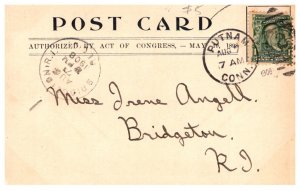 75
POST CARD
AUTHORIZED BY ACT OF CONGRESS, — MAY
PUTNAM
AUG
7 AM
CONN.
Miss Irene Angell.
Bridgeton.
R.I.